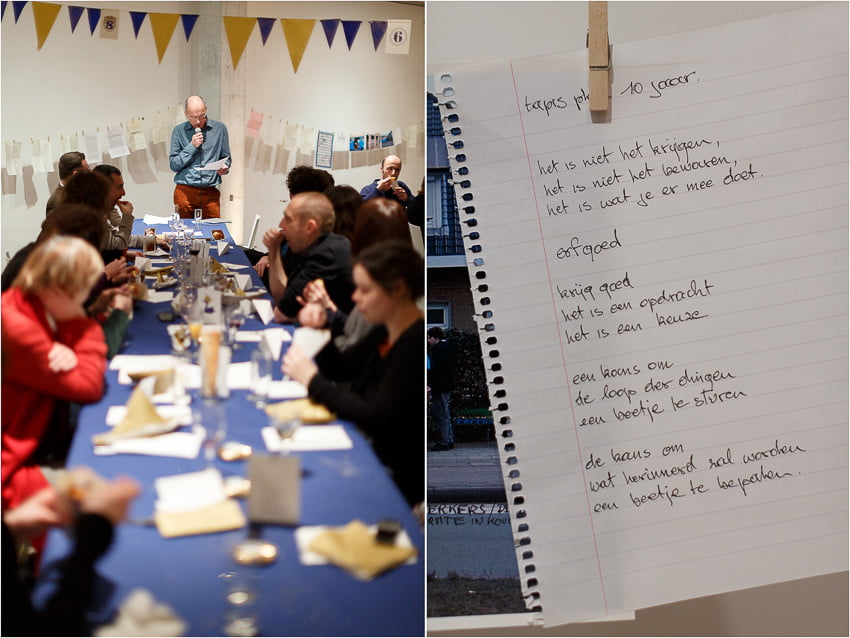 8
6
tapis pl 10 jaaar.
het is niet het krijgen,
het is niet het bewaren,
het is wat je er mee doet.
erfgoed
krijg goed
het is een opdracht
het is een keuze
een kans om
de loop der dingen
een beetje te sturen
de kans om
wat herinnerd zal worden
een beetje te bepalen.
EKKERS/